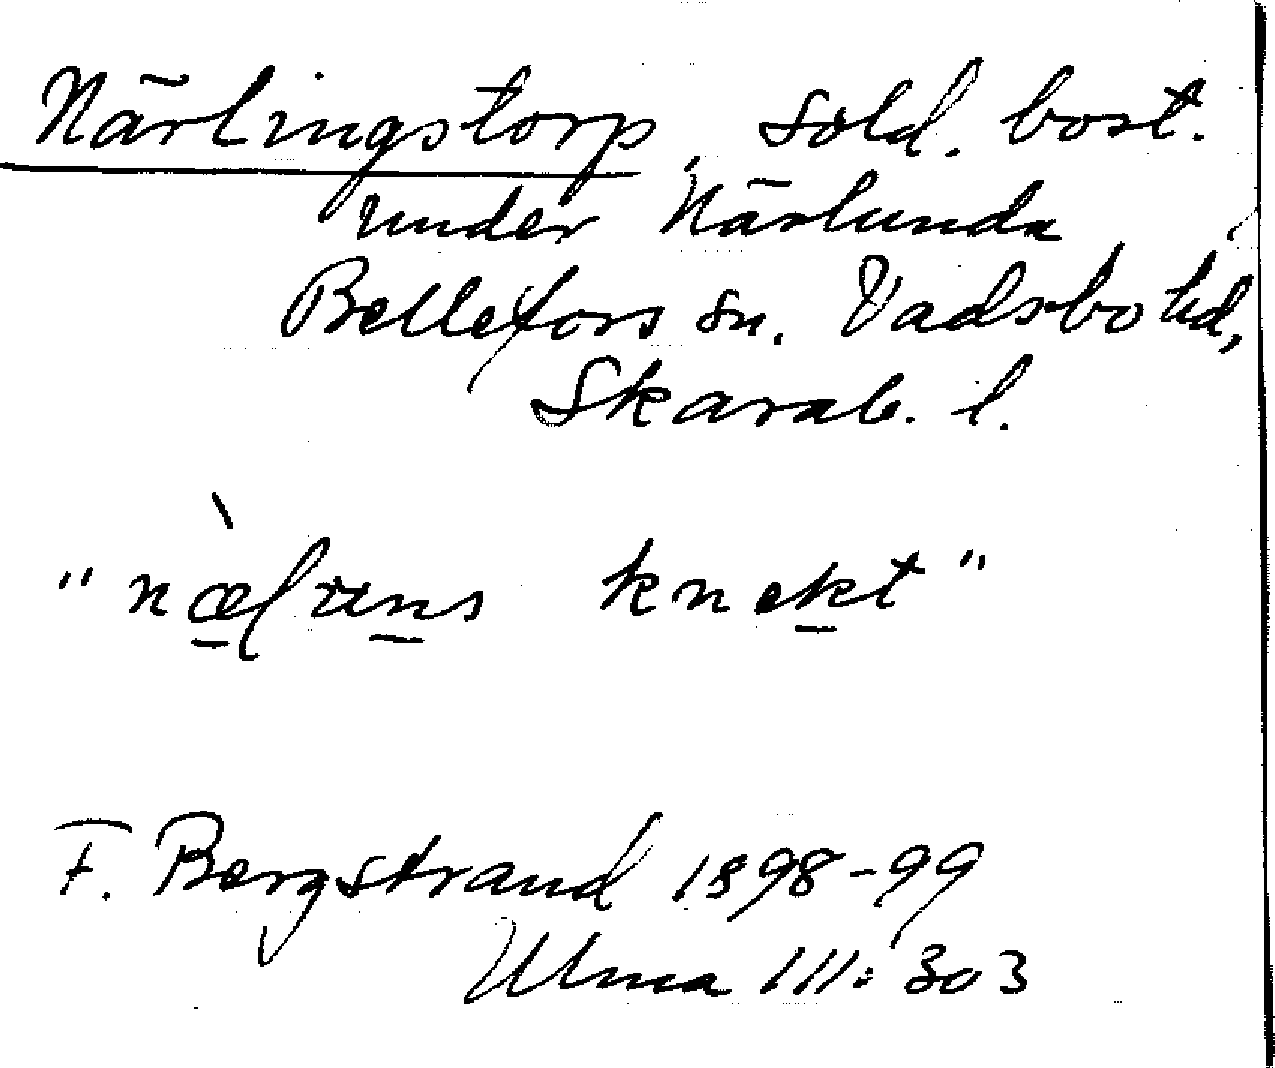 Närlingstorp, sold. bost.
under Närlunda
Bellefors sn. Vadsbo hd,
Skarab. l.
knekt"
F. Bergstrand 1898-99
Ulma 111:303